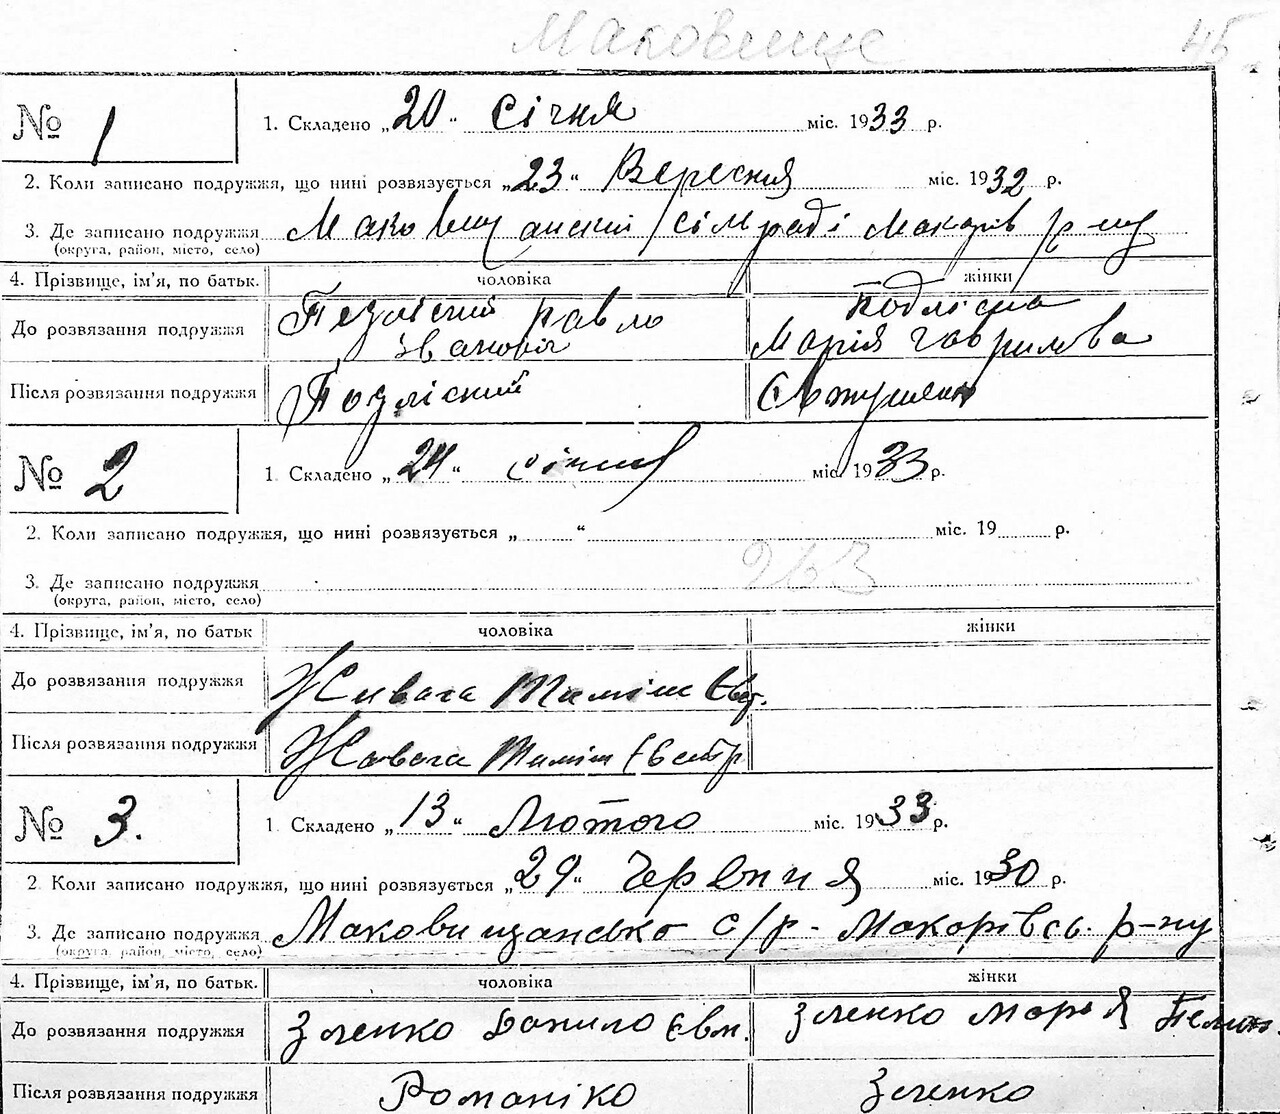 Маковище 45
№ 1
1. Складено „20“ січня міс. 1933 р.
2. Коли записано подружжя, що нині розвязується „23“ Вересня міс. 1932 р.
3. Де записано подружжя Маковищанский сільраді Макарів р-ну
(округа, район, місто, село)
4. Прізвище, ім'я, по батьк. чоловіка жінки
До розвязання подружжя Подліский Павло Іванович Подлісна Марія Гаврилова
Після розвязання подружжя Подліский
№ 2
1. Складено „24“ січня міс. 1933 р.
2. Коли записано подружжя, що нині розвязується „ “ міс. 19 р.
263
3. Де записано подружжя
(округа, район, місто, село)
4. Прізвище, ім'я, по батьк чоловіка жінки
До розвязання подружжя Живага Тиміш Евст.
Після розвязання подружжя Живага Тиміш Евстр
№ 3.
1. Складено „13“ Лютого міс. 1933 р.
2. Коли записано подружжя, що нині розвязується „29“ Червння міс. 1930 р.
3. Де записано подружжя Маковищансько с/р - Макарівсь. р-ну
(округа, район, місто, село)
4. Прізвище, ім'я, по батьк. чоловіка жінки
До розвязання подружжя Зленко Данило Євм. Зленко Марья
Після розвязання подружжя Романіко Зленко